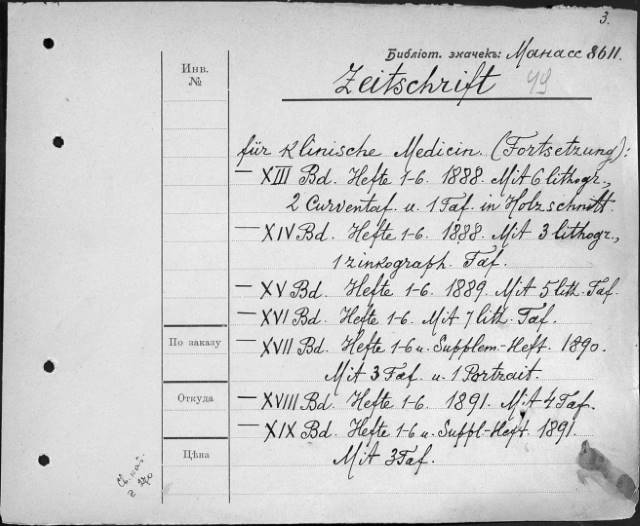 3.
Библіот. значекъ: Манасс 8611.
Инв.
№
Zeitschrift 49
für klinische Medicin. (Fortsetzung):
— XIII Bd. Hefte 1-6. 1888. Mit 6 lithogr.,
2 Curventaf. u. 1 Taf. in Holzschnitt.
— XIV Bd. Hefte 1-6. 1888. Mit 3 lithogr.,
1 zinkograph. Taf.
— XV Bd. Hefte 1-6. 1889. Mit 5 lith. Taf.
— XVI Bd. Hefte 1-6. Mit 7 lith. Taf.
По заказу
— XVII Bd. Hefte 1-6 u. Supplem-Heft. 1890.
Mit 3 Taf. u. 1 Portrait.
Откуда
— XVIII Bd. Hefte 1-6. 1891. Mit 4 Taf.
— XIX Bd. Hefte 1-6 u. Suppl-Heft 1891.
Цѣна
Mit 3 Taf.